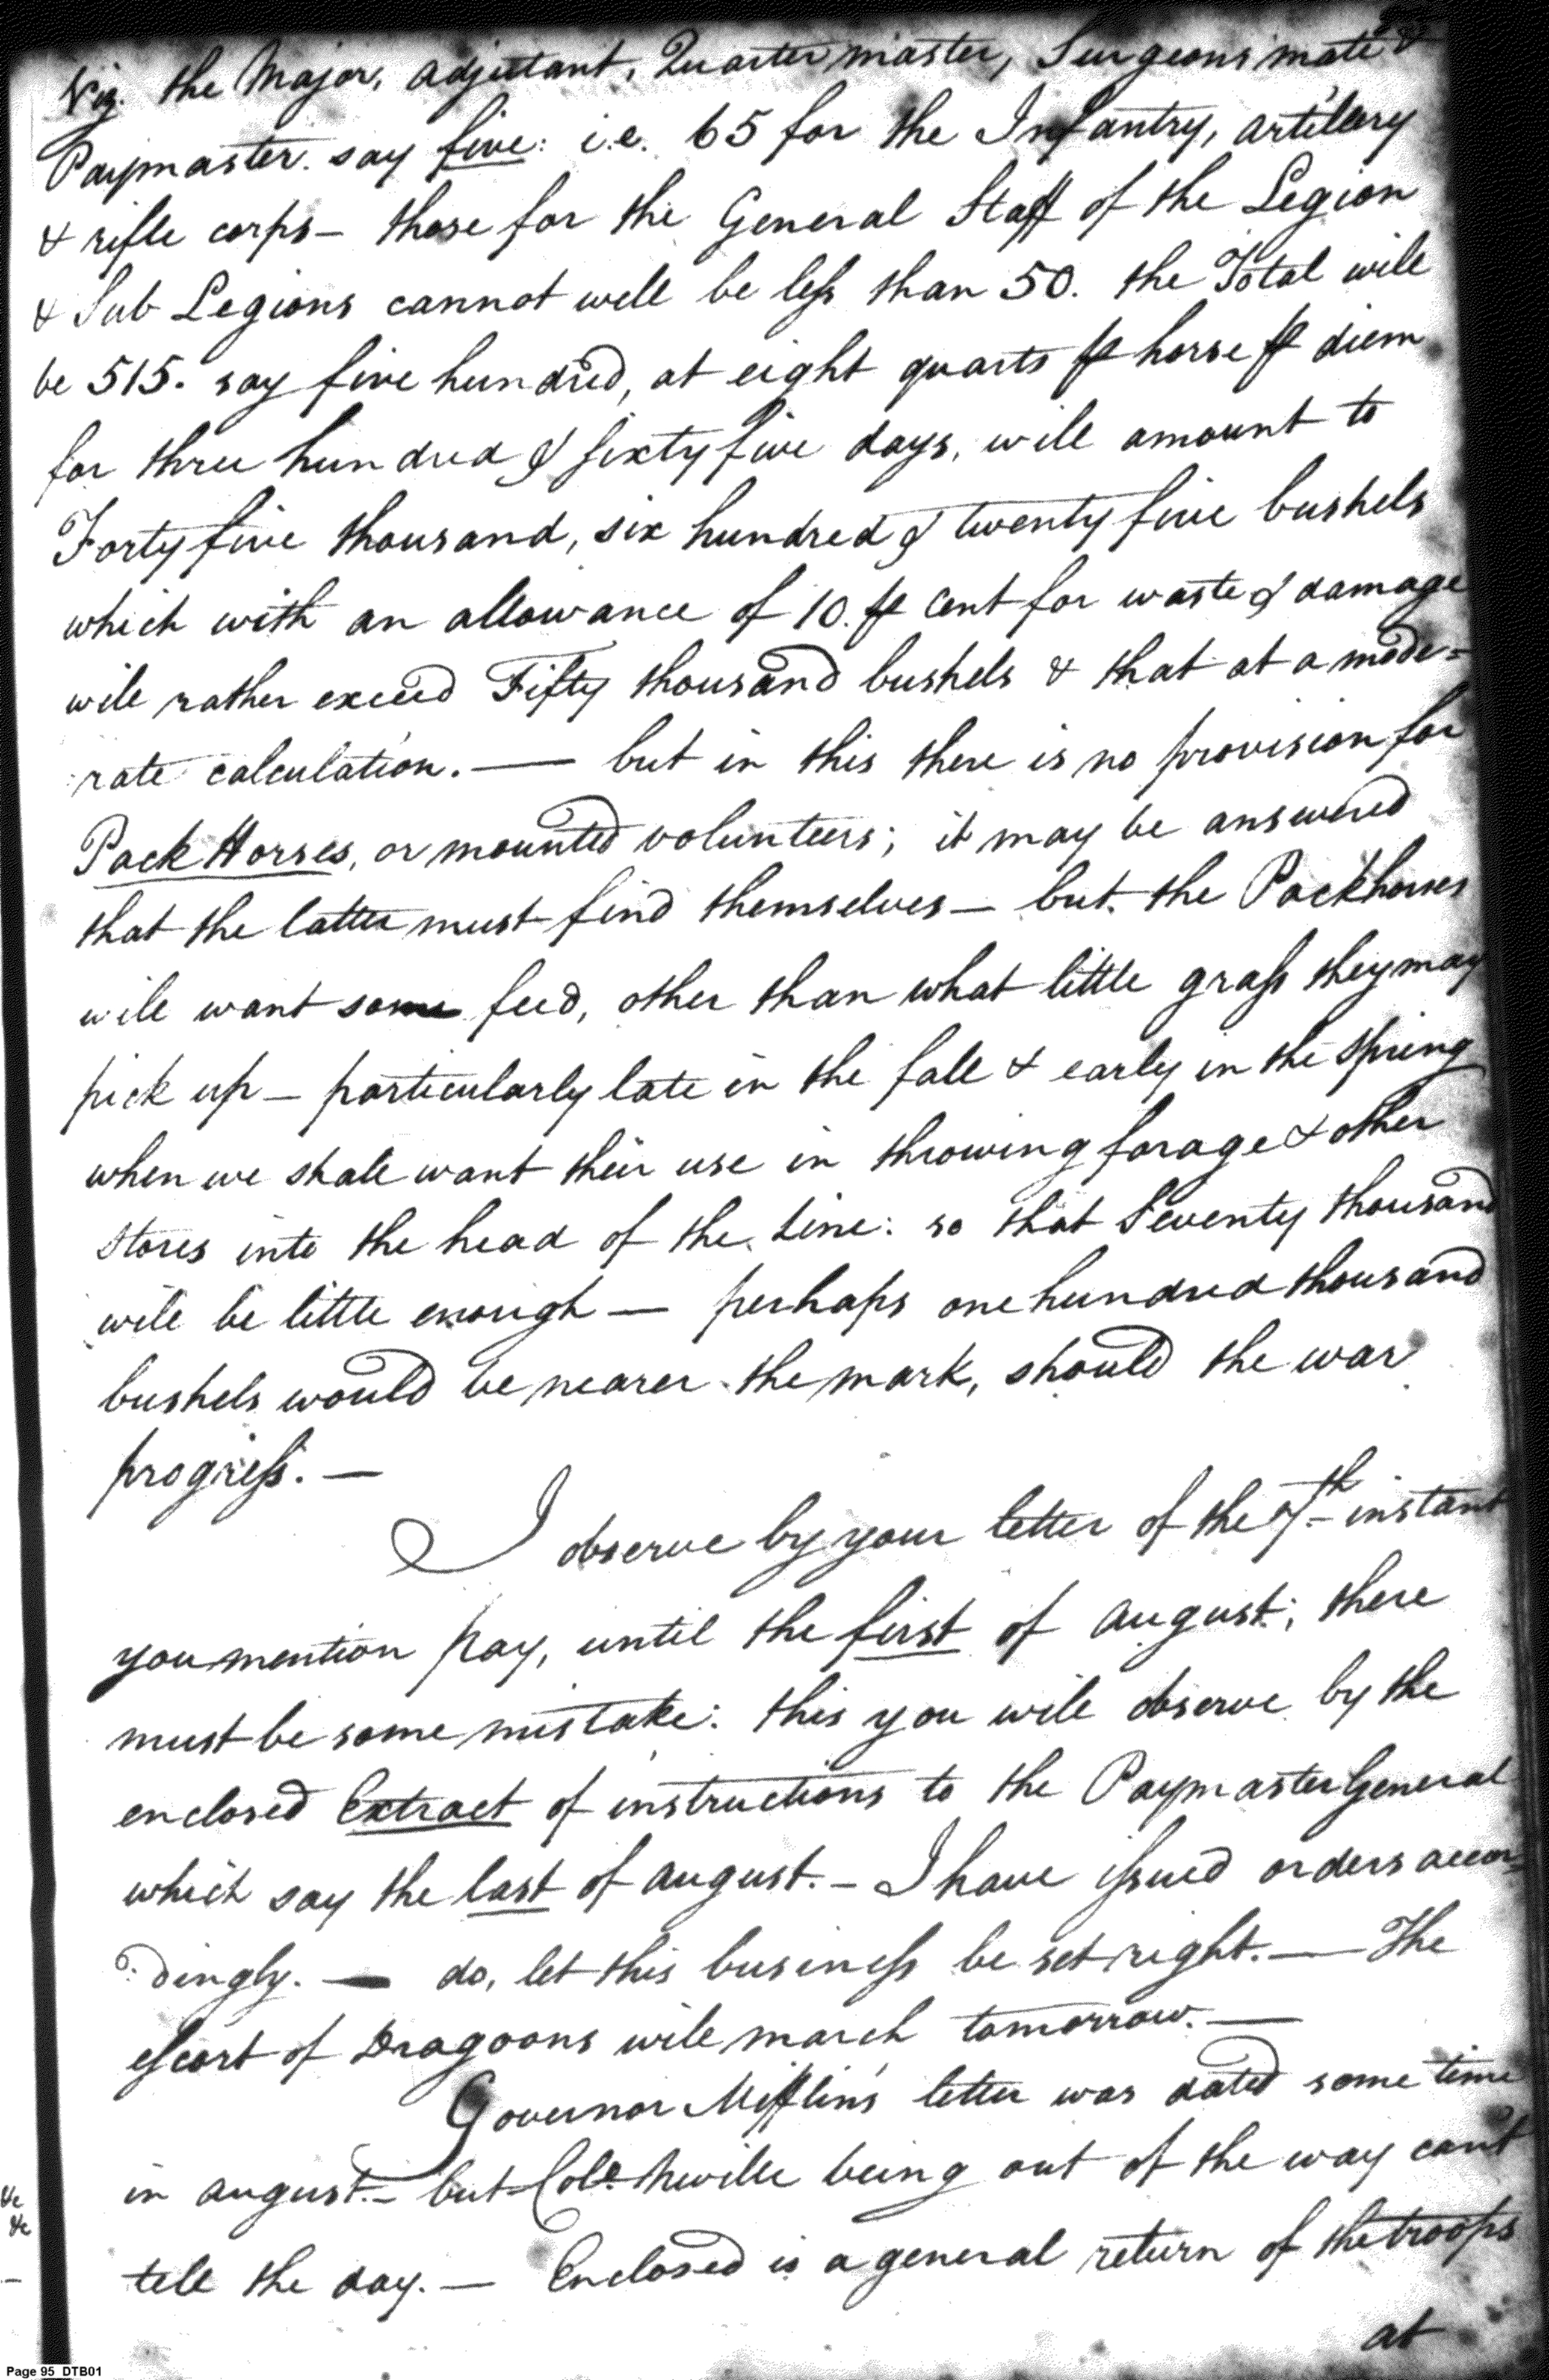 Viz. the Major, Adjutant, Quarter master, Surgeons mate &
Paymaster. say five: i.e. 65 for the Infantry, Artillery
& rifle corps— those for the General Staff of the Legion
& Sub Legions cannot well be less than 50. the Total will
be 515. say five hundred, at eight quarts ⅌ horse ⅌ diem
for three hundred & sixty five days, will amount to
Forty five thousand, six hundred & twenty five bushels
which with an allowance of 10. ⅌ Cent for waste & damage
will rather exceed Fifty thousand bushels & that at a mode=
rate calculation.— but in this there is no provision for
Pack Horses, or mounted volunteers; it may be answered
that the latter must find themselves— but the Packhorses
will want some feed, other than what little grass they may
pick up— particularly late in the fall & early in the Spring
when we shall want their use in throwing forage & other
stores into the head of the Line: so that Seventy thousand
will be little enough— perhaps one hundred thousand
bushels would be nearer the mark, should the war
progress.—
I observe by your letter of the 7th instant
you mention pay, until the first of August; there
must be some mistake: this you will observe by the
enclosed Extract of instructions to the Paymaster General
which say the last of August.— I have issued orders accor=
dingly.— do, let this business be set right.— The
escort of Dragoons will march tomorrow.—
Governor Mifflin's letter was dated some time
in August— but Colo. Neville being out of the way can't
tell the day.— Enclosed is a general return of the troops
at
&c
&c
—
Page 95 DTB01